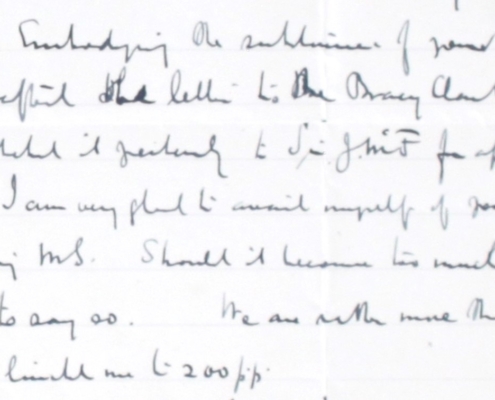 Embodying the sublimines of your
the letter to the Bracy Clark
it yesterday to Sir J. McF for
I am very glad to avail myself of you
MS. Should it become too much
to say so. We are rather more th
limited me to 200 pp.